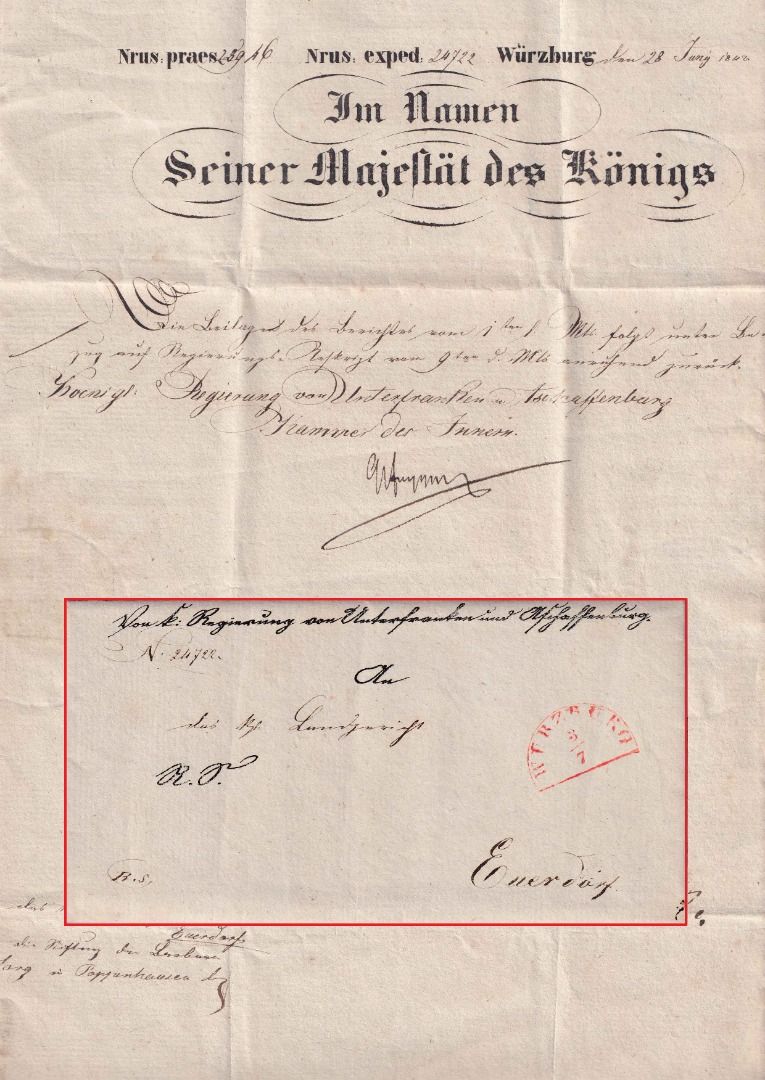 Nrus. praes. 23916 Nrus. exped. 24722 Würzburg den 28 Juny
Im Namen
Seiner Majestät des Königs
Die Beilagen des Berichtes vom 1ten d. Mts folgt unter Be-
zug auf Regierungs-Reskript vom 9ten d. Mts anruhend zurück.
Koenigl: Regierung von Unterfranken u Aschaffenburg
Kammer des Innern.
Von k: Regierung von Unterfranken und Aschaffenburg.
N. 24722.
An
das kgl. Landgericht
WÜRZBURG
3/7
R. S.
Euerdorf
R. S.
das
Euerdorf
die Stiftung der
u Poppenhausen